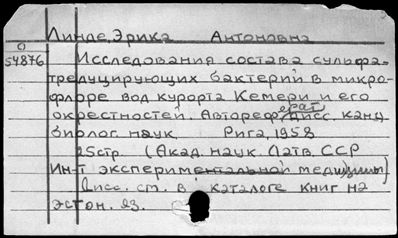 Линде, Эрика Антоновна
О
54876
Исследования состава сульфат-
редуцирующих бактерий в микро-
флоре вод курорта Кемери и его
окрестностей. Автореферат дисс. канд.
биолог. наук. Рига, 1958
25стр. (Акад. наук. Латв. ССР
Ин-т экспериментальной медицины)
Дисс. ст. в каталоге книг на
эстон. яз.